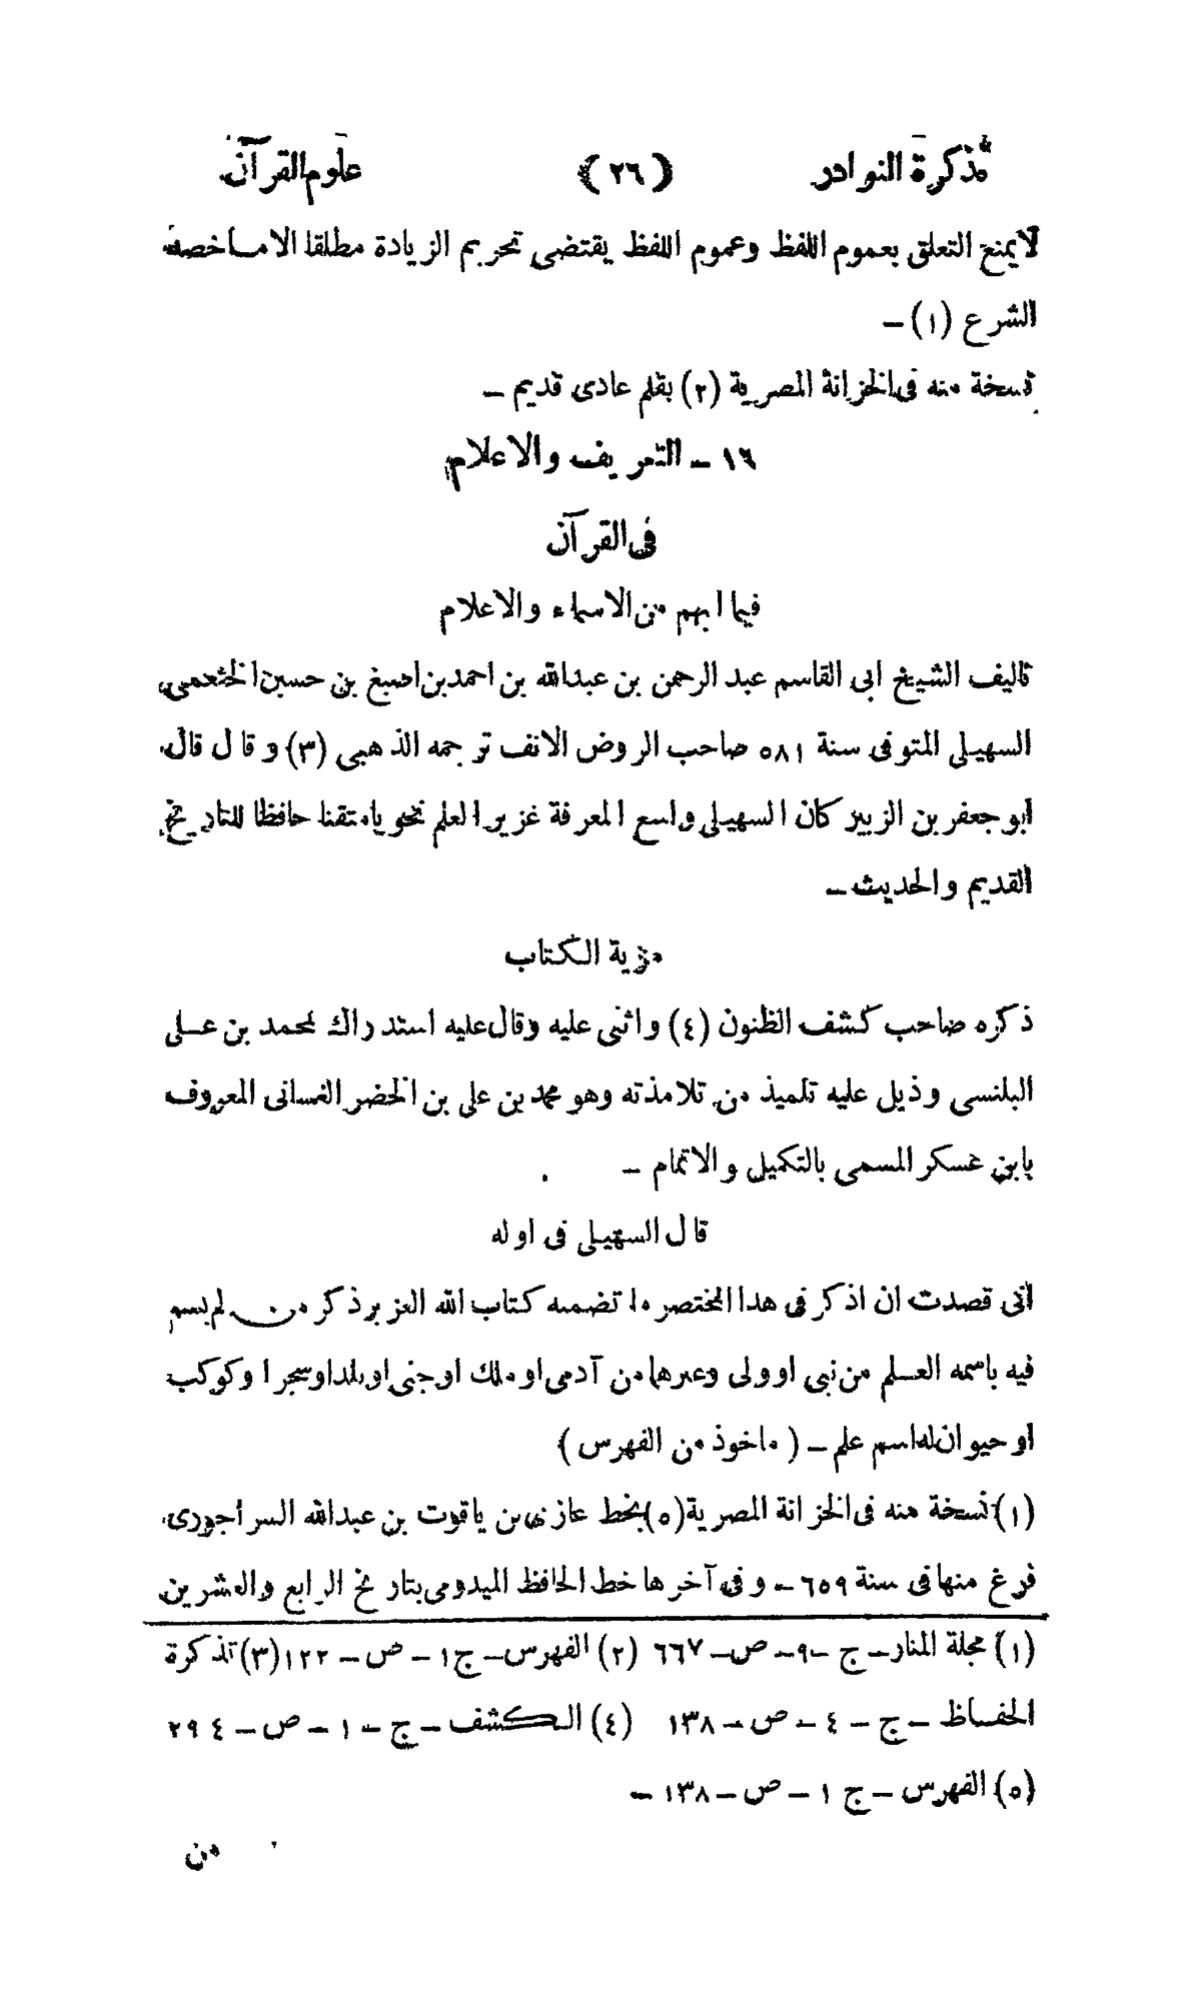 تذكرة النوادر (٢٦) علوم القرآن
لايمنع التعلق بعموم اللفظ وعموم اللفظ يقتضى تحريم الزيادة مطلقا الا ما خصه
الشرع (١) –
نسخة منه فى الخزانة المصرية (٢) بقلم عادى قديم –
١٦ – التعريف والاعلام
فى القرآن
فيما ابهم من الاسماء والاعلام
تاليف الشيخ ابى القاسم عبد الرحمن بن عبدالله بن احمد بن اصبغ بن حسين الخثعمى
السهيلى المتوفى سنة ٥٨١ صاحب الروض الانف ترجمه الذهبى (٣) و قال قال
ابو جعفر بن الزبير كان السهيلى واسع المعرفة غزير العلم نحويا متقنا حافظا للتاريخ
القديم والحديث –
مزية الكتاب
ذكره صاحب كشف الظنون (٤) واثنى عليه وقال عليه استدراك لمحمد بن على
البلنسى وذيل عليه تلميذ من تلامذته وهو محمد بن على بن الخضر الغسانى المعروف
بابن عسكر المسمى بالتكميل والاتمام –
قال السهيلى فى اوله
انى قصدت ان اذكر فى هدا المختصر ما تضمنه كتاب الله العزيز ذكر من لم يسم
فيه باسمه العلم من نبى او ولى وغيرهما من آدمى او ملك او جنى او بلد او سجر او كوكب
او حيوان له اسم علم – ( ماخوذ من الفهرس )
(١) نسخة منه فى الخزانة المصرية (٥) بخط غازى بن ياقوت بن عبدالله السراجورى
فرغ منها فى سنة ٦٥٩ – و فى آخرها خط الحافظ الميدومى بتاريخ الرابع والعشرين
(١) مجلة المنار – ج – ٩ – ص – ٦٦٧ (٢) الفهرس – ج ١ – ص – ١٢٢ (٣) تذكرة
الحفاظ – ج – ٤ – ص – ١٣٨ (٤) الكشف – ج – ١ – ص – ٢٩٤
(٥) الفهرس – ج ١ – ص – ١٣٨ –
من